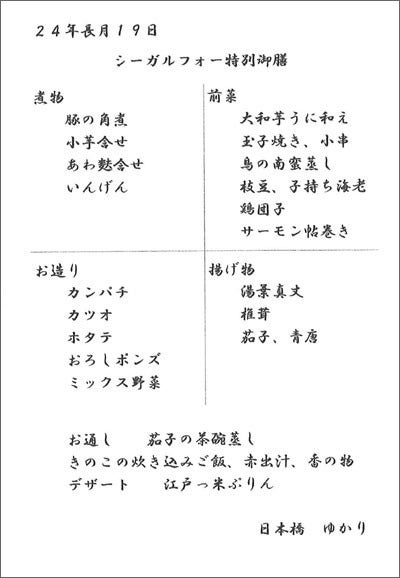 24年長月19日
シーガルフォー特別御膳
煮物
豚の角煮
小芋含せ
あわ麩含せ
いんげん
前菜
大和芋うに和え
玉子焼き、小串
鳥の南蛮蒸し
枝豆、子持ち海老
鶏団子
サーモン帖巻き
お造り
カンパチ
カツオ
ホタテ
おろしポンズ
ミックス野菜
揚げ物
湯葉真丈
椎茸
茄子、青唐
お通し　茄子の茶碗蒸し
きのこの炊き込みご飯、赤出汁、香の物
デザート　江戸っ米ぷりん
日本橋　ゆかり